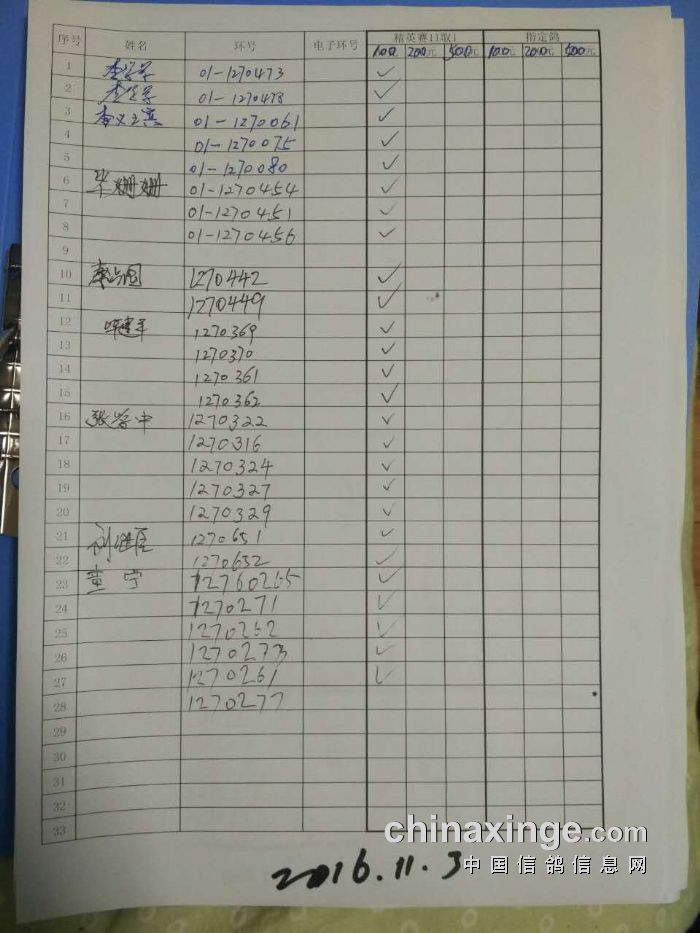 序号 姓名 环号 电子环号 精英赛11取1 指定鸽
100元 200元 500元 100元 200元 500元
1 01-1270473 ✓
2 01-1270478 ✓
3 01-1270061 ✓
4 01-1270075 ✓
5 01-1270080 ✓
6 毕姗姗 01-1270454 ✓
7 01-1270451 ✓
8 01-1270456 ✓
9
10 1270442 ✓
11 1270449 ✓
12 陈建军 1270369 ✓
13 1270370 ✓
14 1270361 ✓
15 1270362 ✓
16 张学中 1270322 ✓
17 1270316 ✓
18 1270324 ✓
19 1270327 ✓
20 1270329 ✓
21 1270651 ✓
22 1270652 ✓
23 童宁 12760265 ✓
24 1270271 ✓
25 1270262 ✓
26 1270273 ✓
27 1270261 ✓
28 1270277
29
30
31
32
33
chinaxinge.com
中国信鸽信息网
2016.11.3